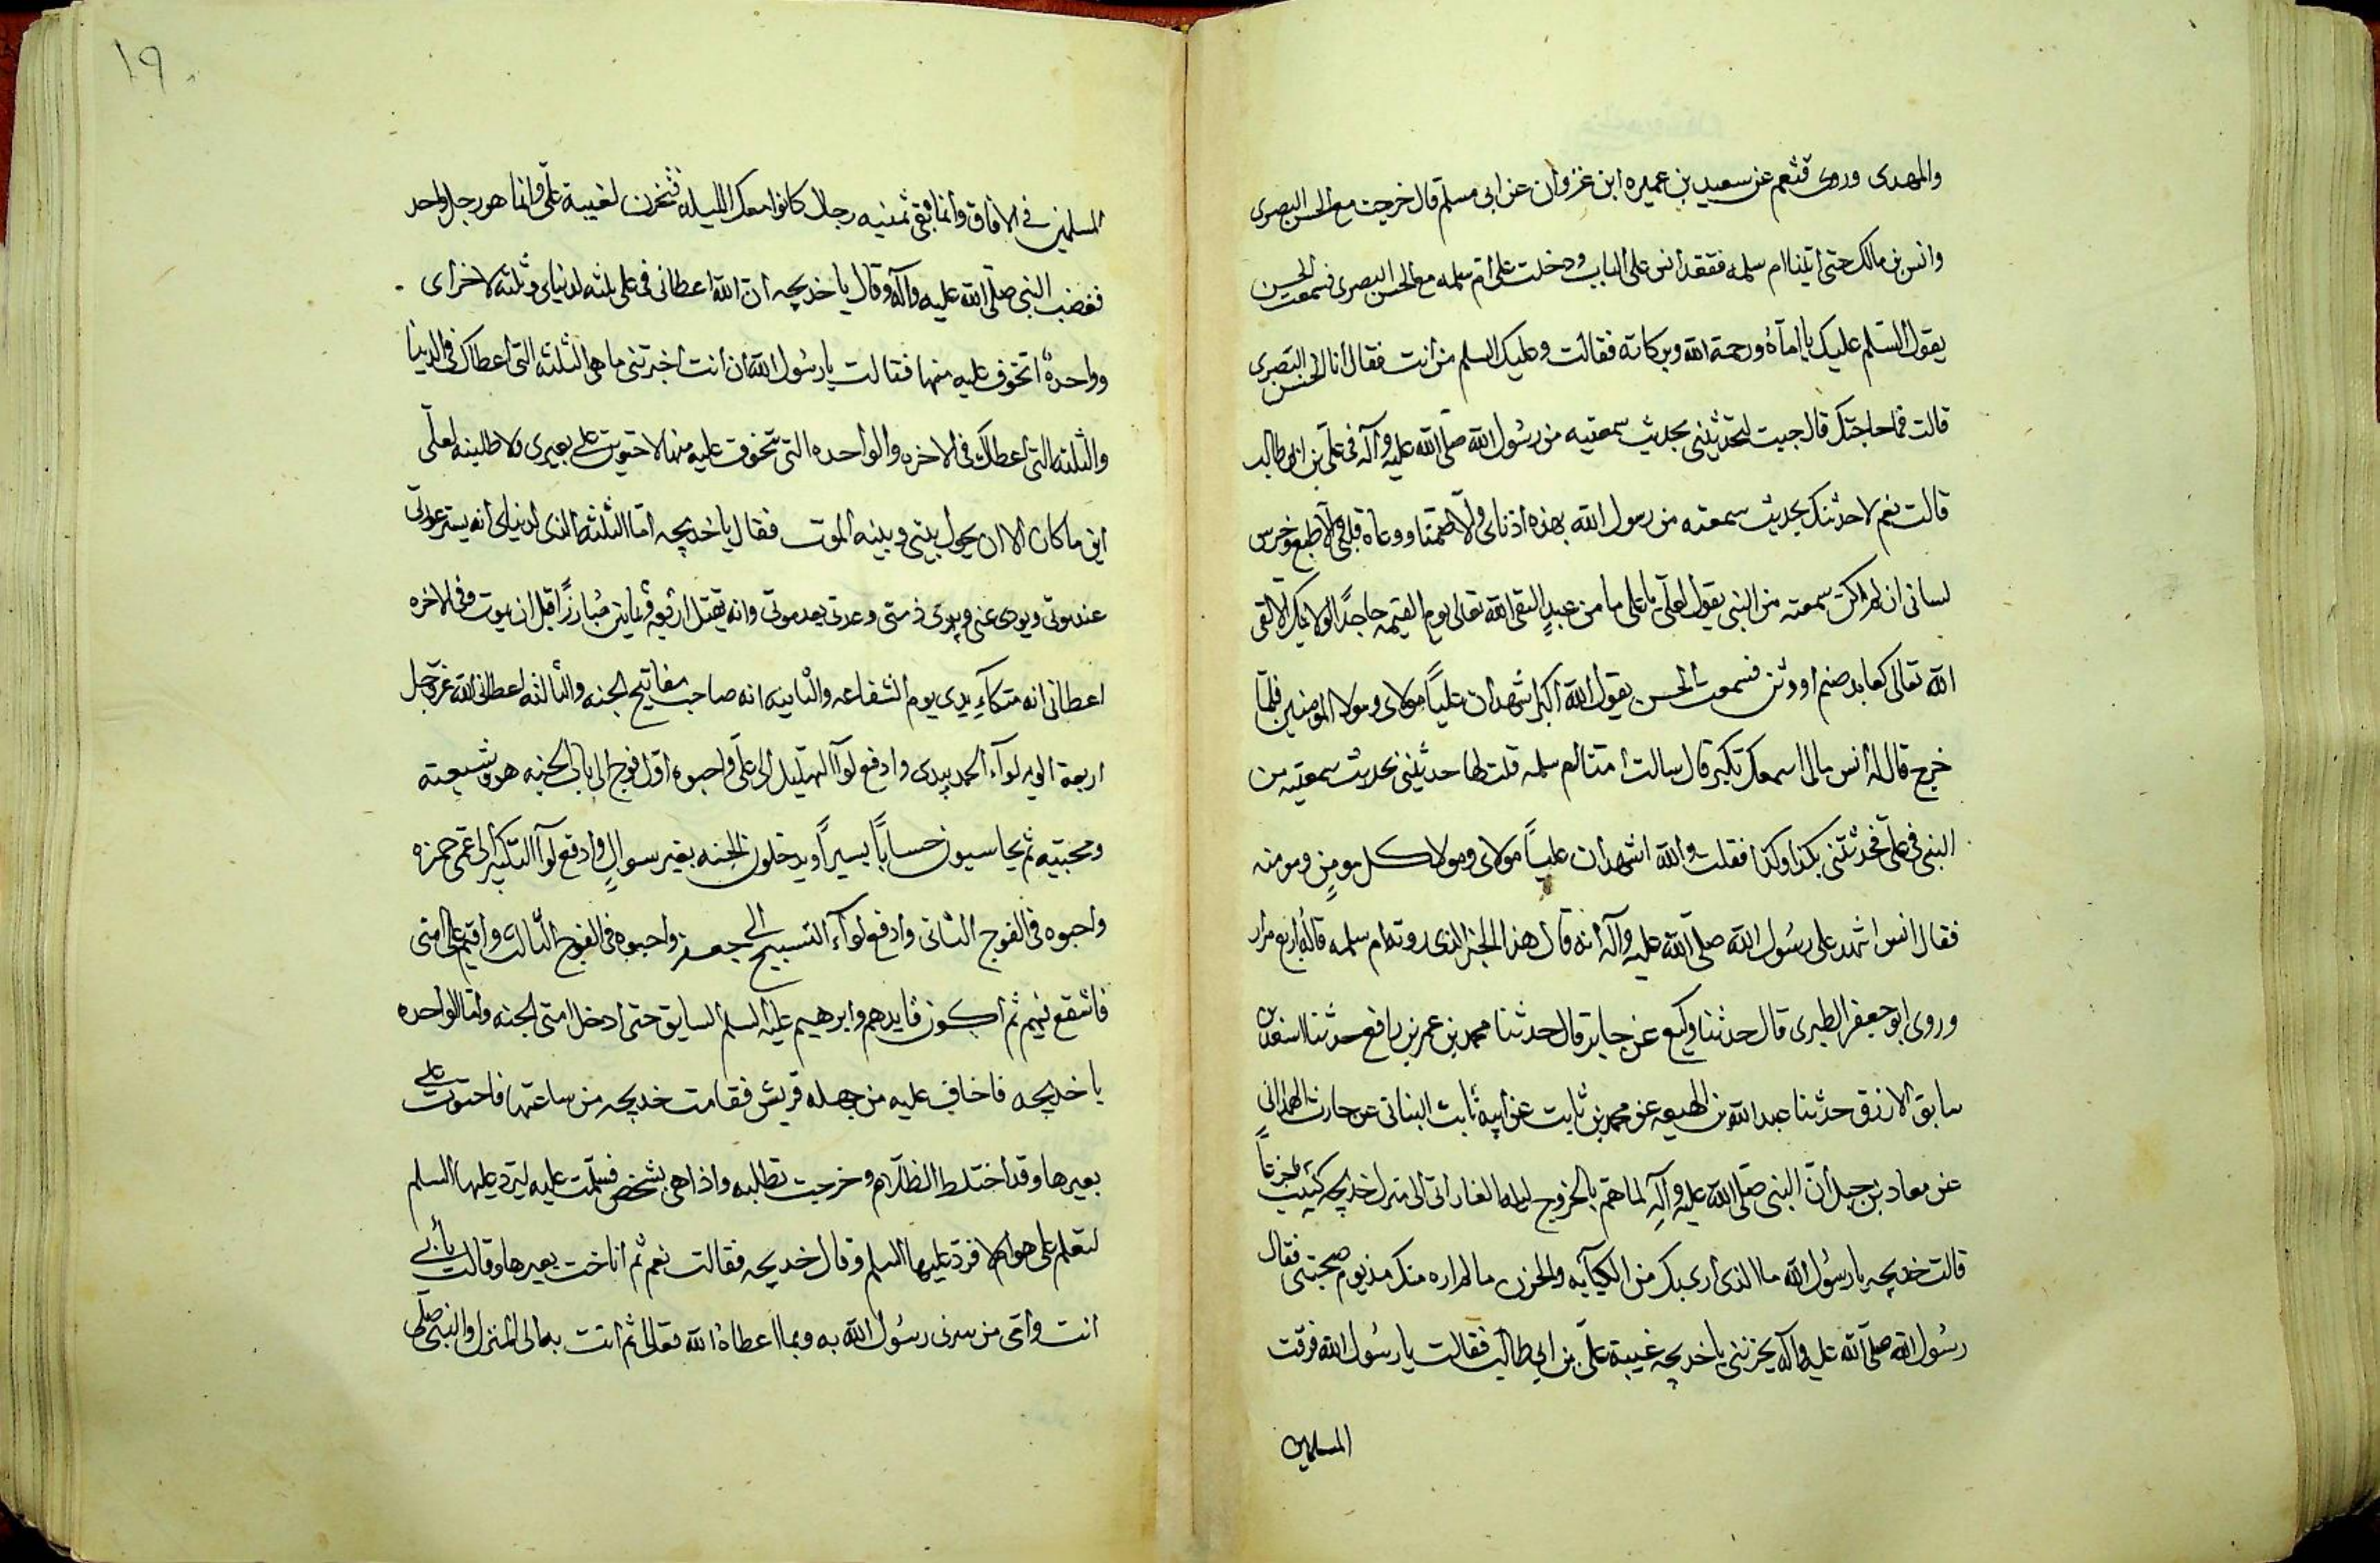 والمهدى وروى قثعم عن سعيد بن عميره ابن غزوان عن ابى مسلم قال خرجت مع الحسن البصرى
وانس بن مالك حتى اتينا ام سلمه فقعد انس على الباب ودخلت على ام سلمه مع الحسن البصرى فسمعت الحسن
يقول السلم عليك يا اماه ورحمة الله وبركاته فقالت وعليك السلم من انت فقال انا الحسن البصرى
قالت فما حاجتك قال جيت لتحدثيننى بحديث سمعتيه من رسول الله صلى الله عليه وآله فى على بن ابى طالب
قالت نعم لاحدثنك بحديث سمعته من رسول الله بهذه اذناى ولا صمتا ووعاه قلبى والا طبع وخرس
لسانى ان لم اكن سمعته من النبى يقول لعلى يا على ما من عبد التقى الله تعالى يوم القيمه جاحدا لولايتك الا لقى
الله تعالى كعابد صنم او وثن فسمعت الحسن يقول الله اكبر اشهد ان عليًا مولاى ومولا المومنين فلمّا
خرج قال له انس مالى اسمعك تكبر قال سالت امنا ام سلمه قلت لها حدثينى بحديث سمعتيه من
النبى فى على فحدثتنى بكذا وكذا فقلت والله اشهد ان عليًا مولاى ومولا كل مومنٍ ومومنه
فقال انس اشهد على رسول الله صلى الله عليه وآله انه قال هذا الخبر الذى روته ام سلمه قاله اربع مرار
وروى ابو جعفر الطبرى قال حدثنا وكيع عن جابر قال حدثنا محمد بن عمر بن رافع حدثنا اسعد بن
سابق الازرق حدثنا عبد الله بن الهيعه عن محمد بن ثابت عن ابيه ثابت البنانى عن حارث الهمدانى
عن معاد بن جبل ان النبى صلى الله عليه وآله لما هم بالخروج ليله الغار اتى الى منزل خديجه كئيب محزناً
قالت خديجه يا رسول الله ما الذى ارى بك من الكيآبه والحزن ما لم اره منك مذ يوم صحبتنى فقال
رسول الله صلى الله عليه وآله يحزننى يا خديجه غيبة على بن ابى طالب فقالت يا رسول الله فرقت
المسلمين
١٩
المسلمين فى الافاق وانما بقى ثمنيه رجال كانوا معك الليله فتحزن لغيبة على وانما هو رجل واحد
فغضب النبى صلى الله عليه وآله وقال يا خديجه ان الله اعطانى فى على ثلثه لدنياى وثلثه لاخراى
وواحدة اتخوف عليه منها فقالت يا رسول الله ان انت اخبرتنى ما هى الثلثه التى اعطاك فى الدنيا
والثلثه التى اعطاك فى الاخره والواحده التى تتخوف عليه منها لاحتويت على بعيرى ولاطلبنه لعلى
اين ما كان الا ان يحول بينى وبينه الموت فقال يا خديجه امّا الثلثه الذى لدنياى انه يستر عورتى
عند موتى ويودى عنى ويبرى ذمتى وعدتى بعد موتى وانه يقتل اربعه وثمانين مُبارزًا قبل ان يموت وفى الاخره
اعطانى انه متكآء يدى يوم الشفاعه والثانيه انه صاحب مفاتيح الجنه والثالثه اعطانى الله عز وجل
اربعة الويه لوآء الحمد بيدى وادفع لوآ التهليل الى على واحبوه اول فوج الى باب الجنه هو وشيعته
ومحبّيه ثم يحاسبون حسابًا يسيرًا ويدخلون الجنه بغير سوالٍ وادفع لوآ التكبير الى عمى حمزه
واحبوه فى الفوج الثانى وادفع لوآء التسبيح الى جعفر واحبوه فى الفوج الثالث واقيم على امتى
فاشفع فيهم ثم اكون قايدهم وابرهيم عليه السلم السايق حتى ادخل امتى الجنه واما الواحده
يا خديجه فاخاف عليه من جهله قريش فقامت خديجه من ساعتها فاحتوت على
بعيرها وقد اختلط الظلام وخرجت تطلبه واذا هى بشخص فسلمت عليه ليرد عليها السلم
لتعلم على هو ام لا فرد عليها السلم وقال خديجه فقالت نعم ثم اناخت بعيرها وقالت بأبى
انت وامى من سرنى رسول الله به وبما اعطاه الله تعالى ثم اتت به الى المنزل والنبى صلى